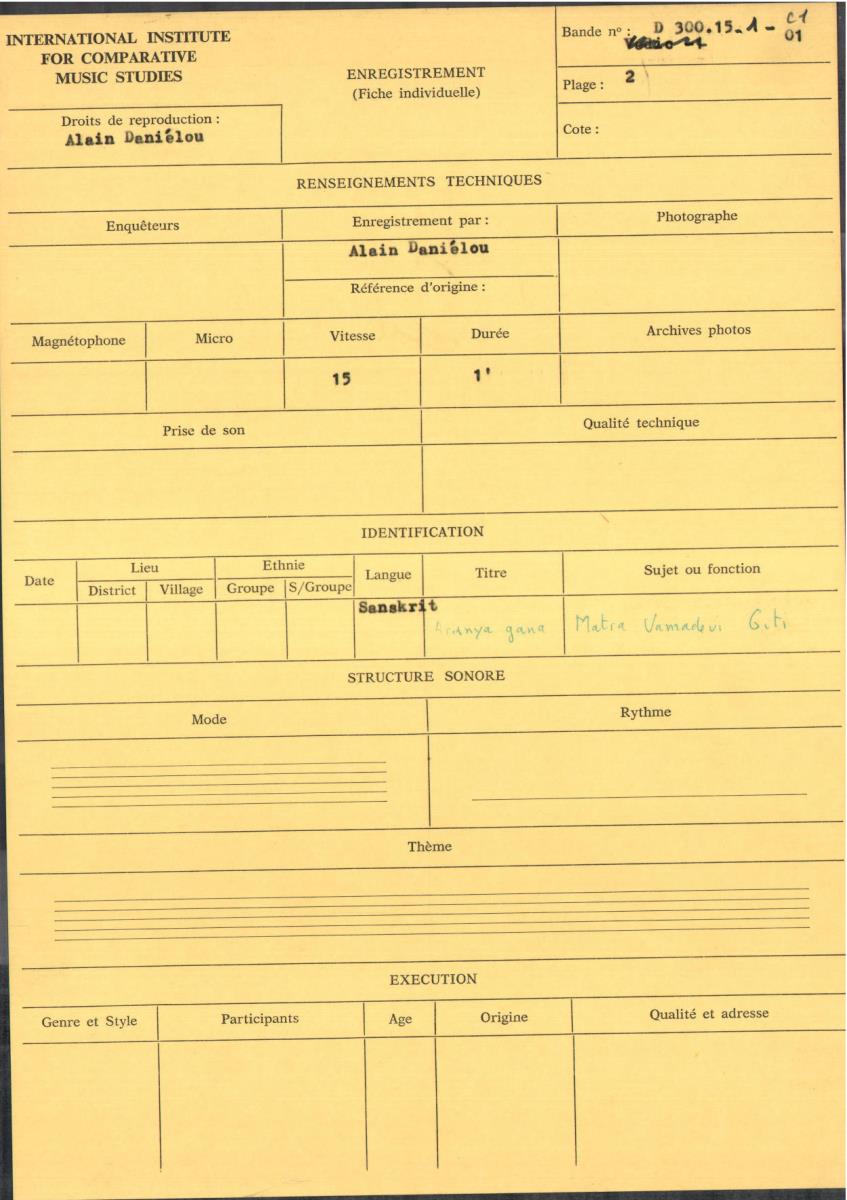 INTERNATIONAL INSTITUTE
FOR COMPARATIVE
MUSIC STUDIES
Droits de reproduction :
Alain Daniélou
ENREGISTREMENT
(Fiche individuelle)
Bande nº : D 300.15.1 - C1
01
Plage : 2
Cote :
RENSEIGNEMENTS TECHNIQUES
Enquêteurs
Enregistrement par :
Alain Daniélou
Référence d'origine :
Photographe
Magnétophone
Micro
Vitesse
15
Durée
1'
Archives photos
Prise de son
Qualité technique
IDENTIFICATION
Date
Lieu
District
Village
Ethnie
Groupe
S/Groupe
Langue
Sanskrit
Titre
Aranya gana
Sujet ou fonction
Matra Vamadevi Giti
STRUCTURE SONORE
Mode
Rythme
Thème
EXECUTION
Genre et Style
Participants
Age
Origine
Qualité et adresse